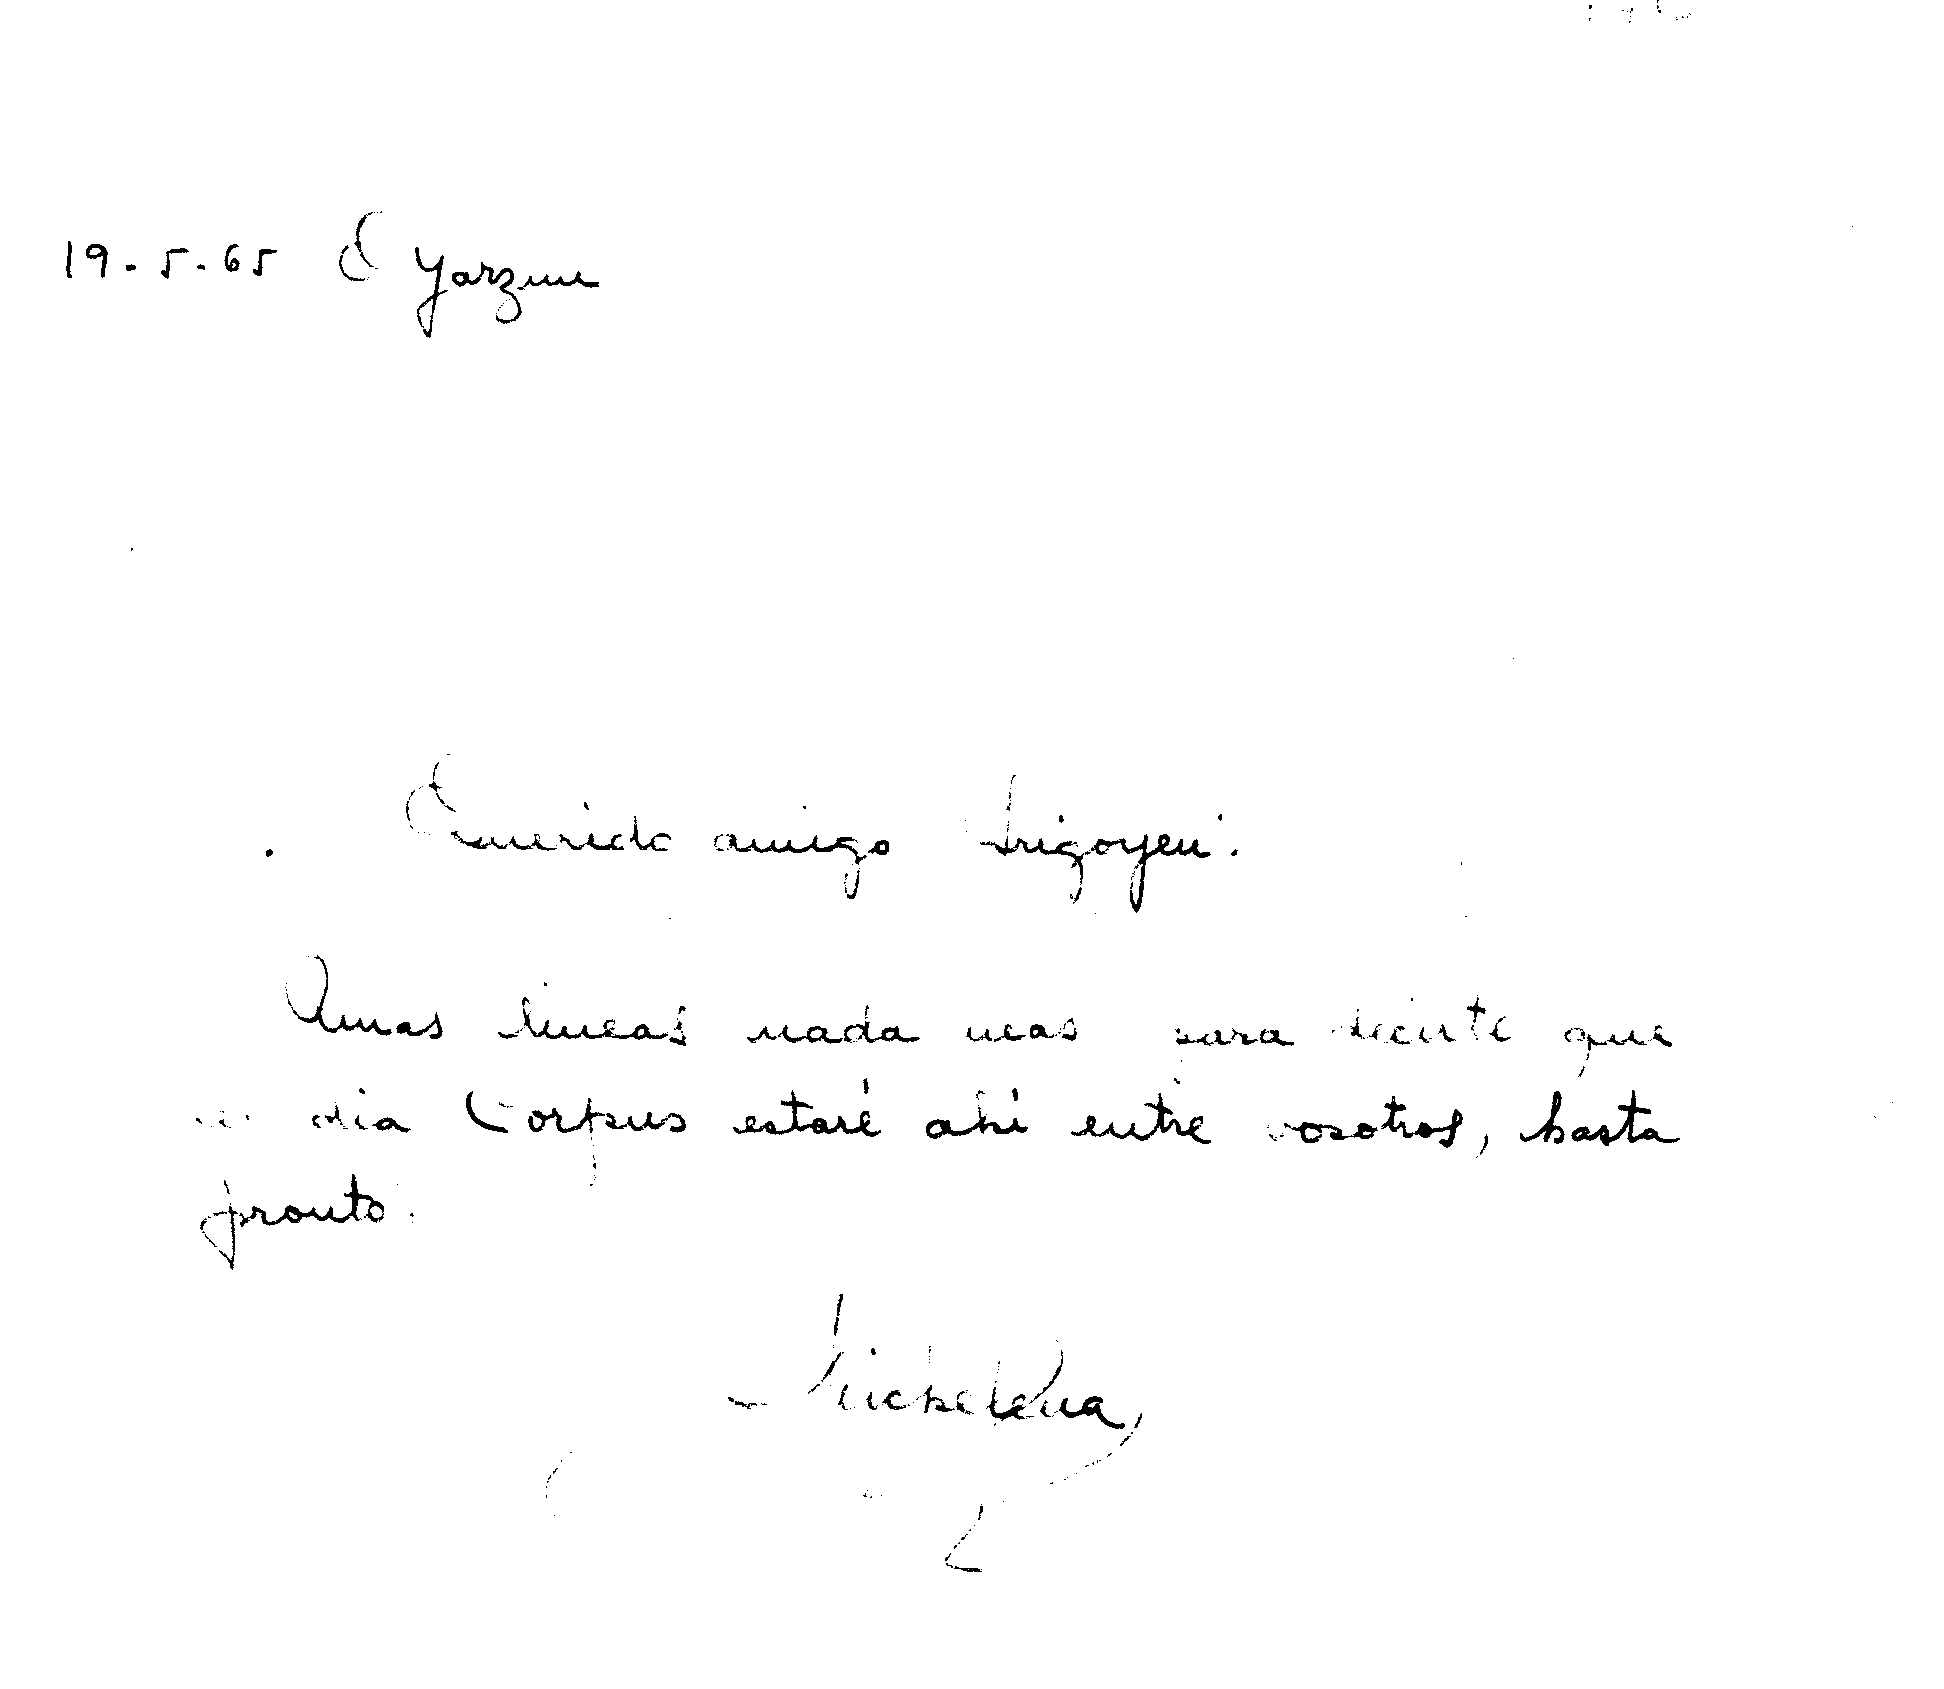 19-5-65 Oyarzun
Querido amigo Irigoyen:
Unas lineas nada mas para decirte que
el dia Corpus estaré ahí entre vosotros, hasta
pronto.
Michelena